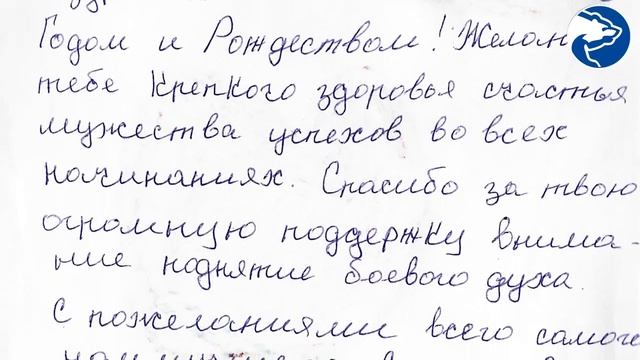 Годом и Рождеством! Желаю
тебе крепкого здоровья счастья
мужества успехов во всех
начинаниях. Спасибо за твою
огромную поддержку внима-
ние поднятие боевого духа.
С пожеланиями всего самого